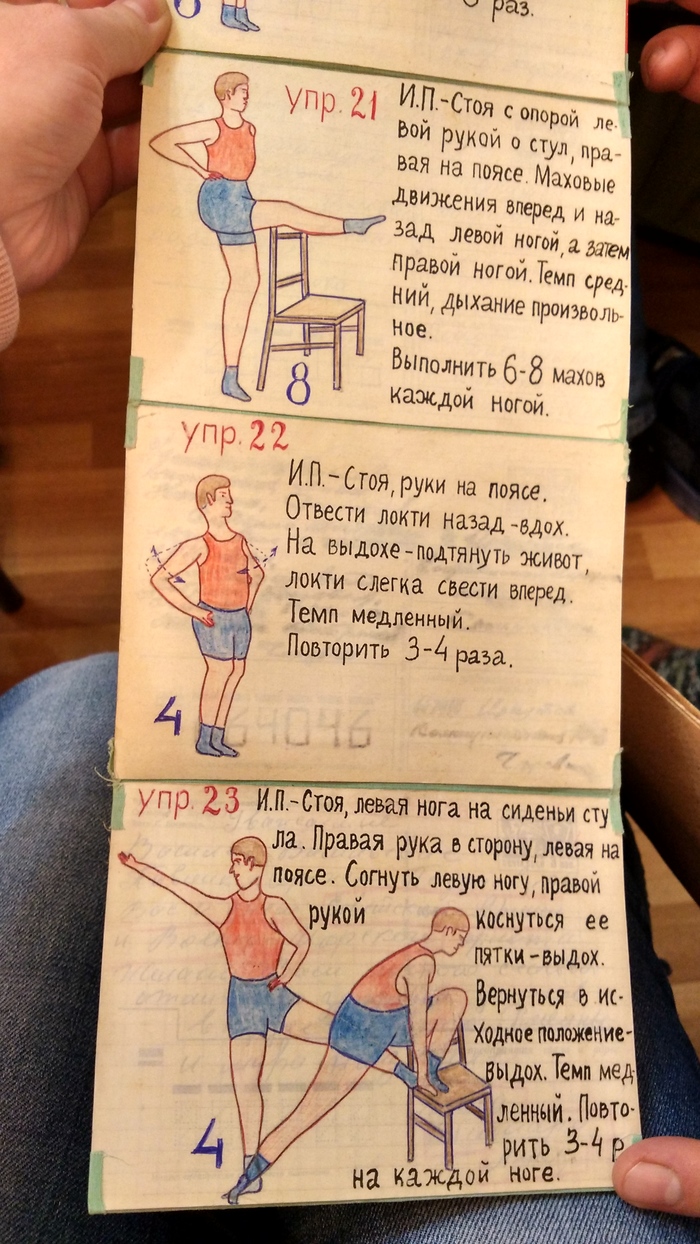 6 раз.
упр. 21
И.П.-Стоя с опорой ле-
вой рукой о стул, пра-
вая на поясе. Маховые
движения вперед и на-
зад левой ногой, а затем
правой ногой. Темп сред-
ний, дыхание произволь-
ное.
Выполнить 6-8 махов
каждой ногой.
8
упр. 22
И.П.-Стоя, руки на поясе.
Отвести локти назад-вдох.
На выдохе-подтянуть живот,
локти слегка свести вперед.
Темп медленный.
Повторить 3-4 раза.
4
64046
упр. 23 И.П.-Стоя, левая нога на сиденьи сту
ла. Правая рука в сторону, левая на
поясе. Согнуть левую ногу, правой
рукой коснуться ее
пятки-выдох.
Вернуться в ис-
ходное положение-
выдох. Темп мед
ленный. Повто-
рить 3-4 р
на каждой ноге.
4